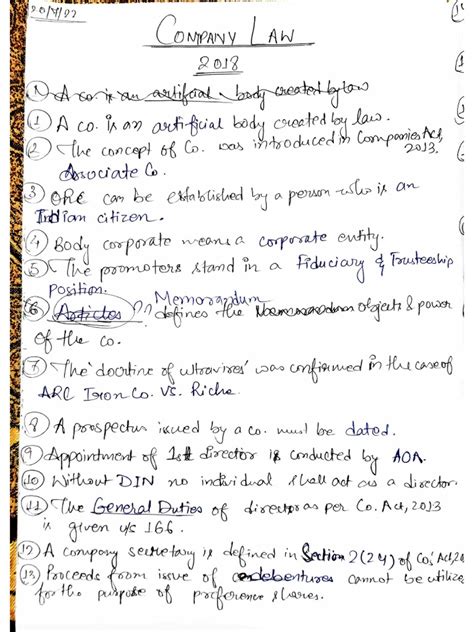 20/7/22
COMPANY LAW
2018
1) A co. is an artificial body created by law
1 A co. is an artificial body created by law.
2 The concept of Co. was introduced in Companies Act,
2013.
Associate Co.
3 OPC can be established by a person who is an
Indian citizen.
4 Body corporate means a corporate entity.
5 The promoters stand in a Fiduciary & Trusteeship
Position.
Memorandum
6 Articles ?? defines the Memorandum objects & power
of the co.
7 The 'docrtine of ultravires' was confirmed in the case of
ARC Iron Co. VS. Riche.
8 A prospectus issued by a co. must be dated.
9 Appointment of 1st director is conducted by AOA.
10 Without DIN no individual shall act as a director.
11 The General Duties of directors as per Co. Act, 2013
is given u/s 166.
12 A company secretary is defined in Section 2(24) of Cos' Act, 20
13 Proceeds from issue of debentures cannot be utilize
for the purpose of preference shares.